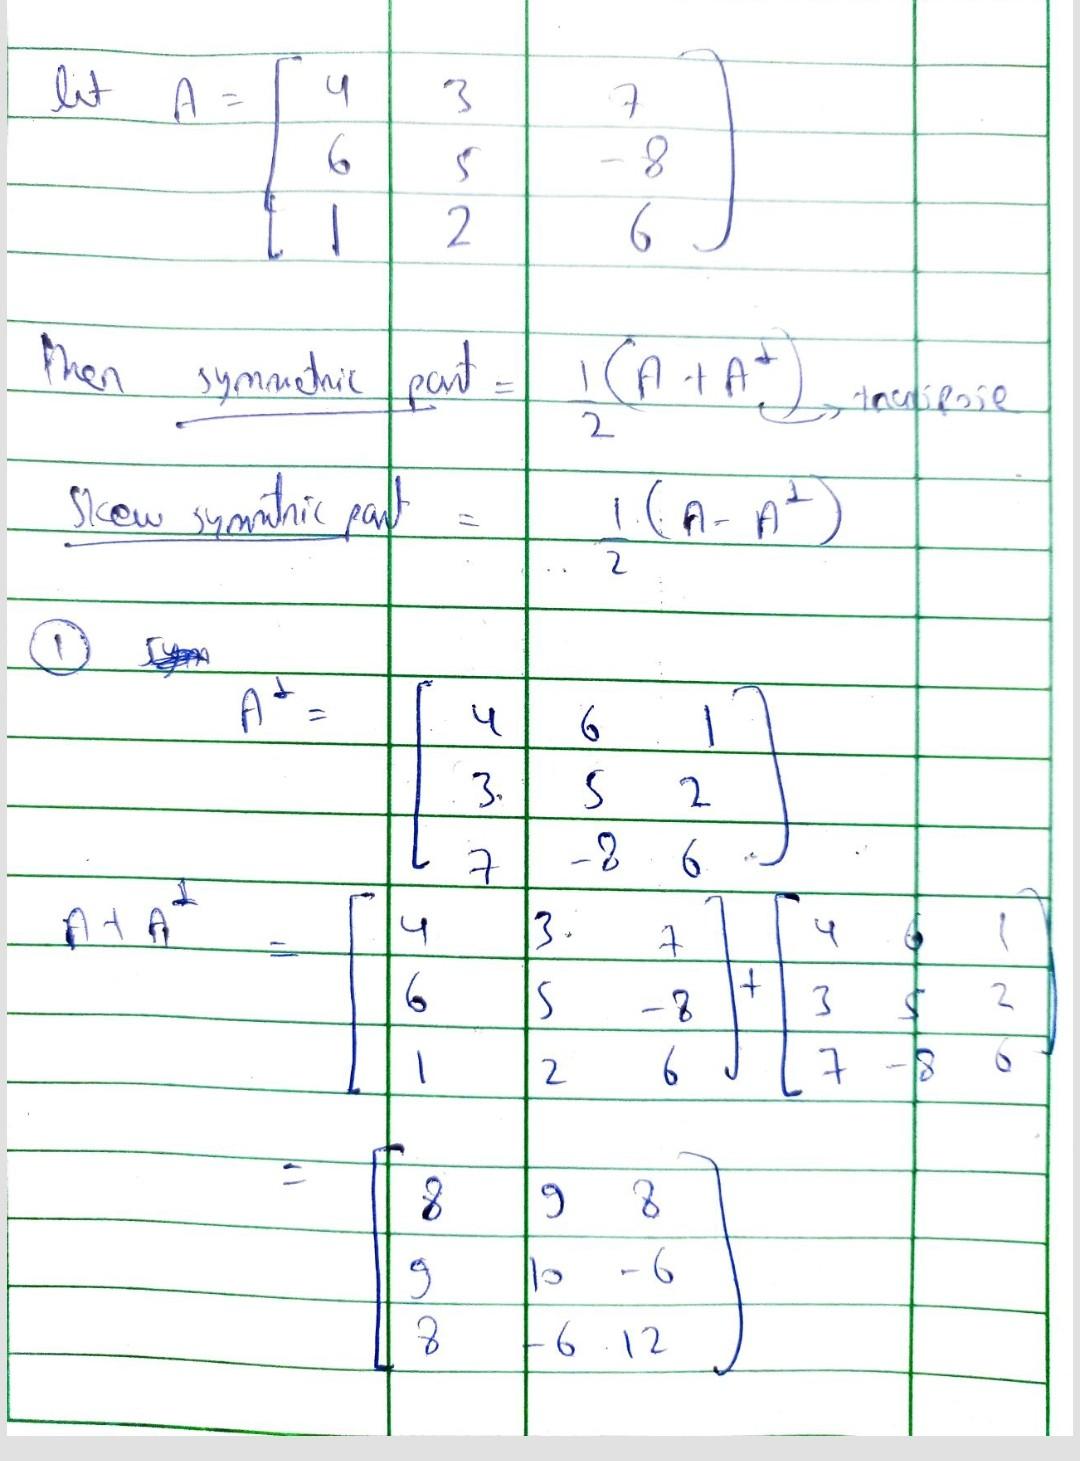 let A = [ 4 3 7
6 5 -8
1 2 6 ]
Then symmetric part = 1/2 (A + A^t) →
Skew symmtric part = 1/2 (A - A^t)
① 
A^t = [ 4 6 1
3 5 2
7 -8 6 ]
A + A^t = [ 4 3 7 ] + [ 4 6 1 ]
[ 6 5 -8 ] [ 3 5 2 ]
[ 1 2 6 ] [ 7 -8 6 ]
= [ 8 9 8
9 10 -6
8 -6 12 ]